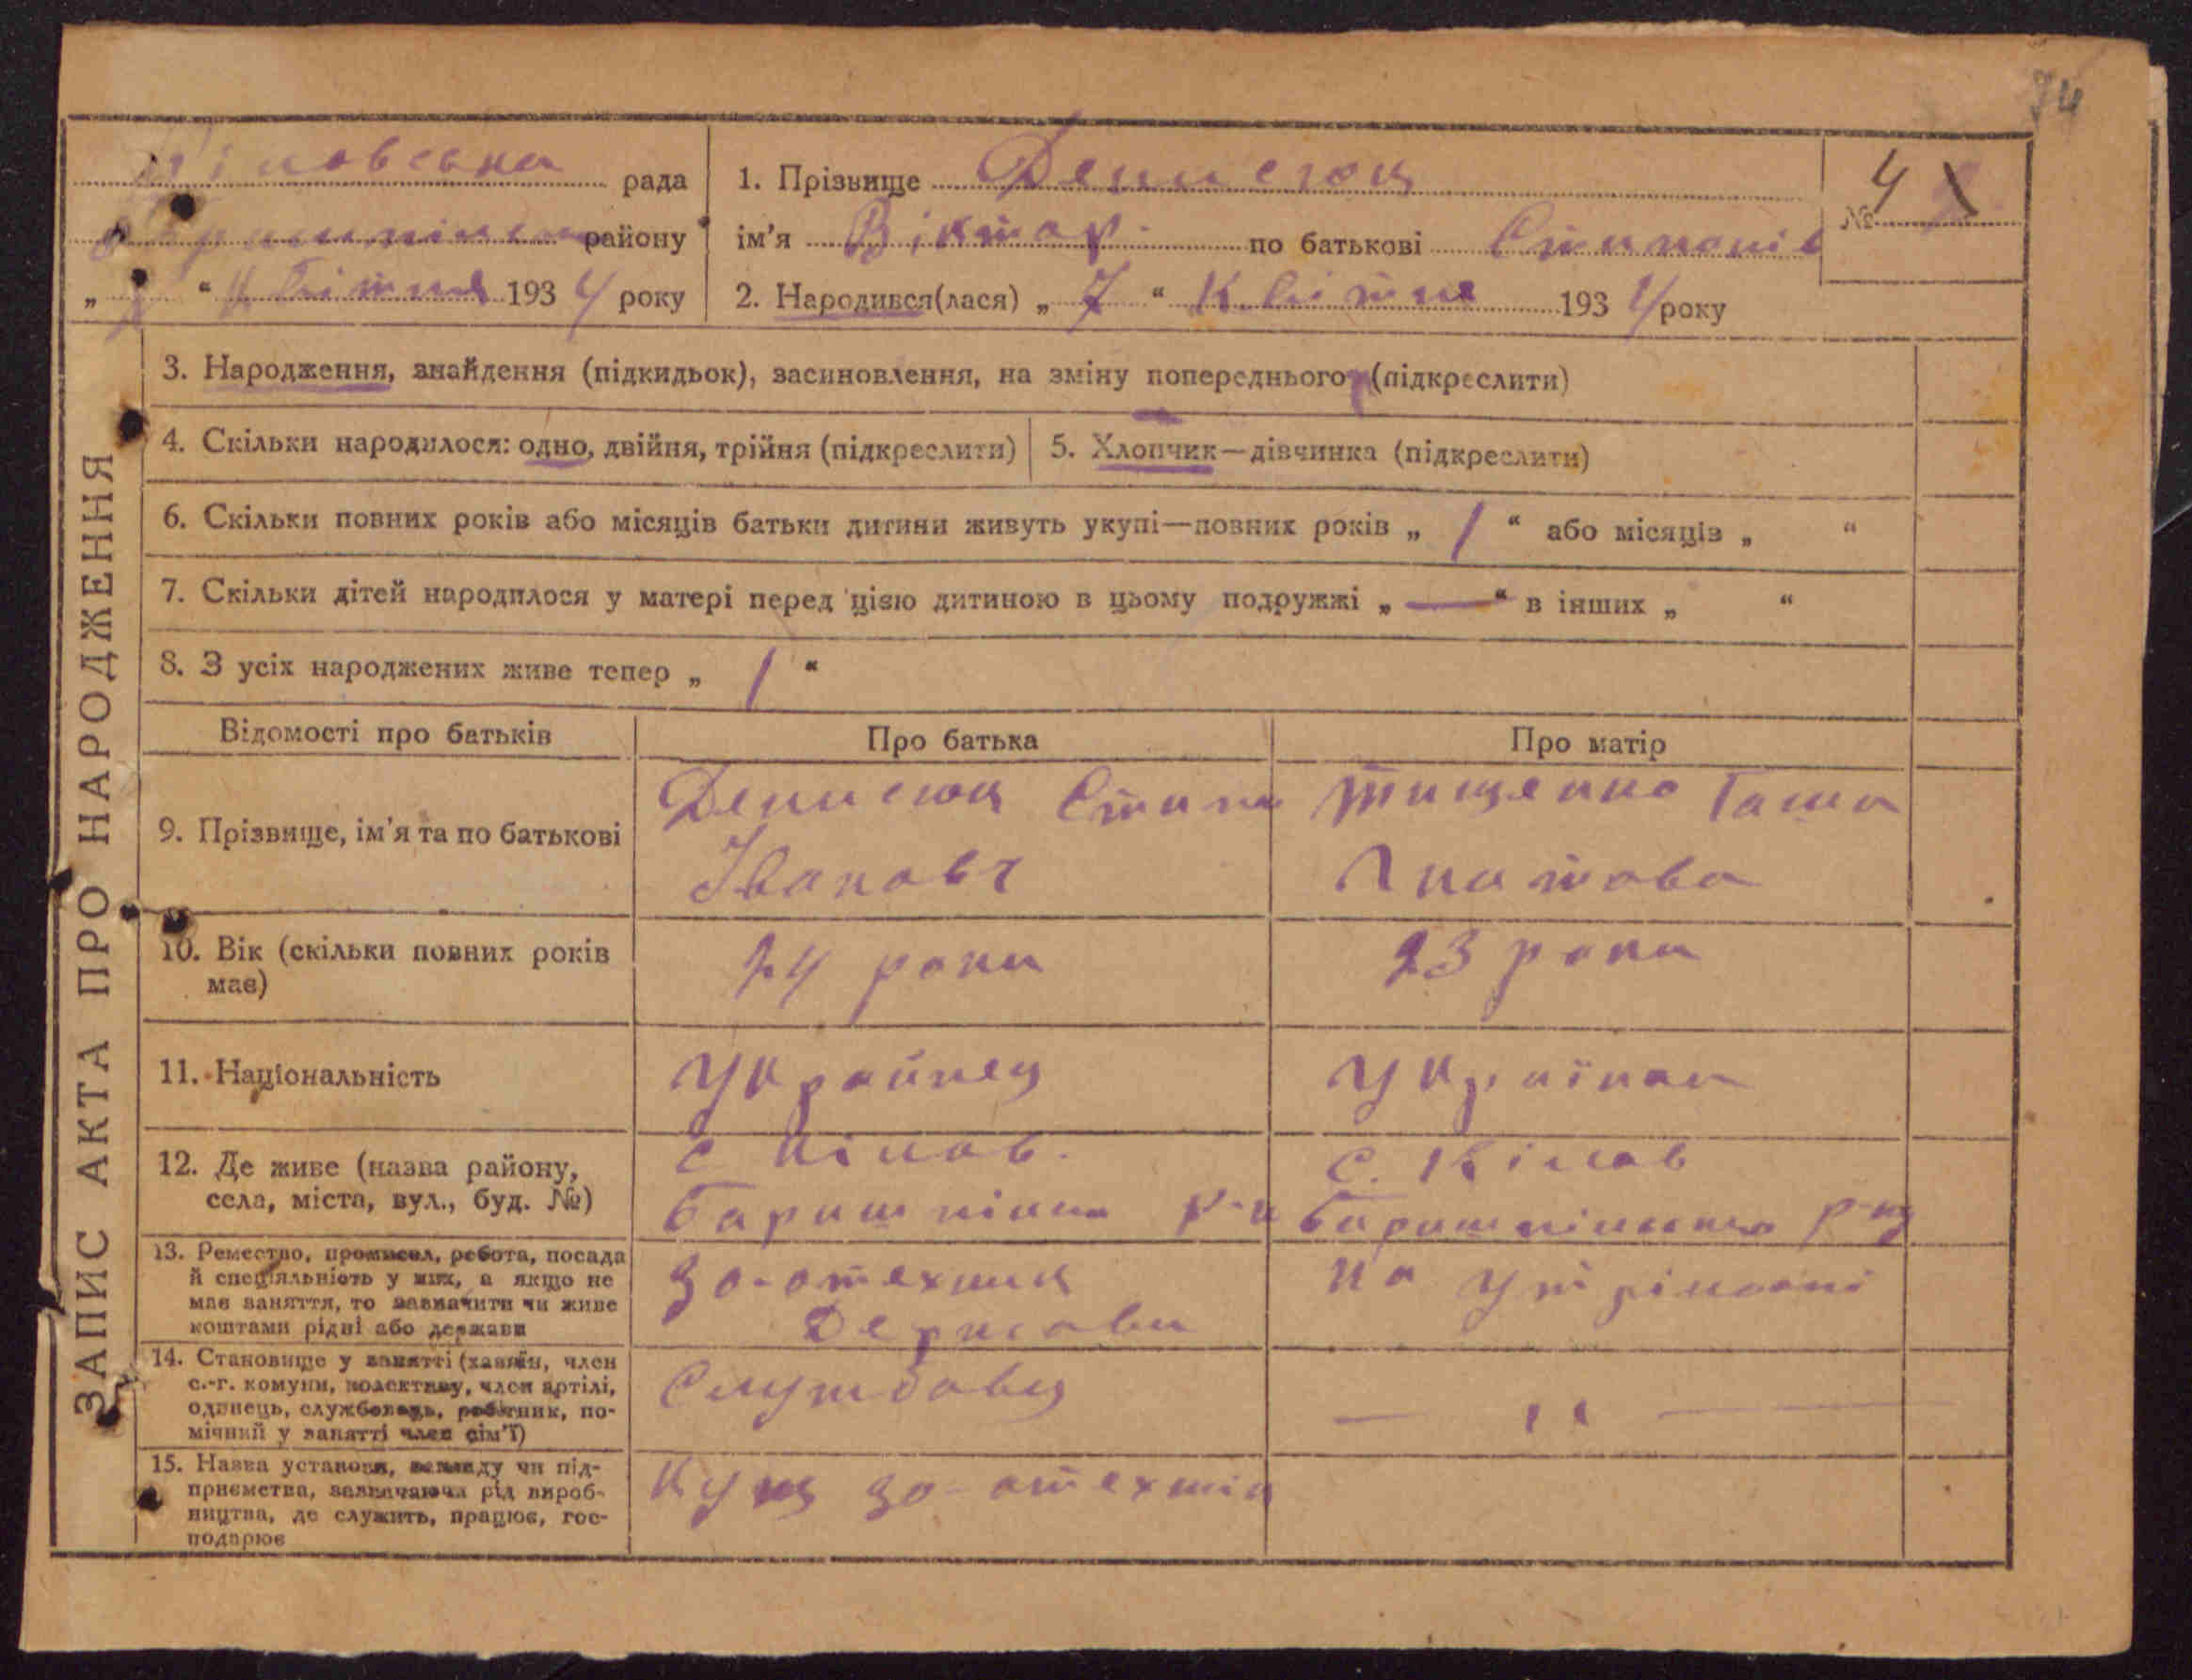 74
Кіловська рада
району
„ “ Квітня 1934 року
1. Прізвище Денисюк
ім'я Віктор по батькові
№ 4
2. Народився(лася) „ 7 “ Квітня 1934 року
3. Народження, знайдення (підкидьок), засиновлення, на зміну попереднього (підкреслити)
4. Скільки народилося: одно, двійня, трійня (підкреслити)
5. Хлопчик—дівчинка (підкреслити)
6. Скільки повних років або місяців батьки дитини живуть укупі—повних років „ 1 “ або місяців „ “
7. Скільки дітей народилося у матері перед цією дитиною в цьому подружжі „ — “ в інших „ “
8. З усіх народжених живе тепер „ 1 “
Відомості про батьків
Про батька
Про матір
9. Прізвище, ім'я та по батькові
Денисюк
Івановч
Тищенко Гаша
10. Вік (скільки повних років
має)
24 роки
23 роки
11. Національність
Українец
Українка
12. Де живе (назва району,
села, міста, вул., буд. №)
с Кілов.
р-н
с. Кілов
13. Ремество, промисел, робота, посада
й спеціяльність у них, а якщо не
має заняття, то зазначити чи живе
коштами рідні або держави
зо-отехник
на утріманні
14. Становище у занятті (хазяїн, член
с.-г. комуни, колективу, член артілі,
одинець, службовець, робітник, по-
мічний у занятті член сім'ї)
Службовец
— “ —
15. Назва установи, закладу чи під-
приємства, зазначаючи рід вироб-
ництва, де служить, працює, гос-
подарює
зо-отехнік
ЗАПИС АКТА ПРО НАРОДЖЕННЯ